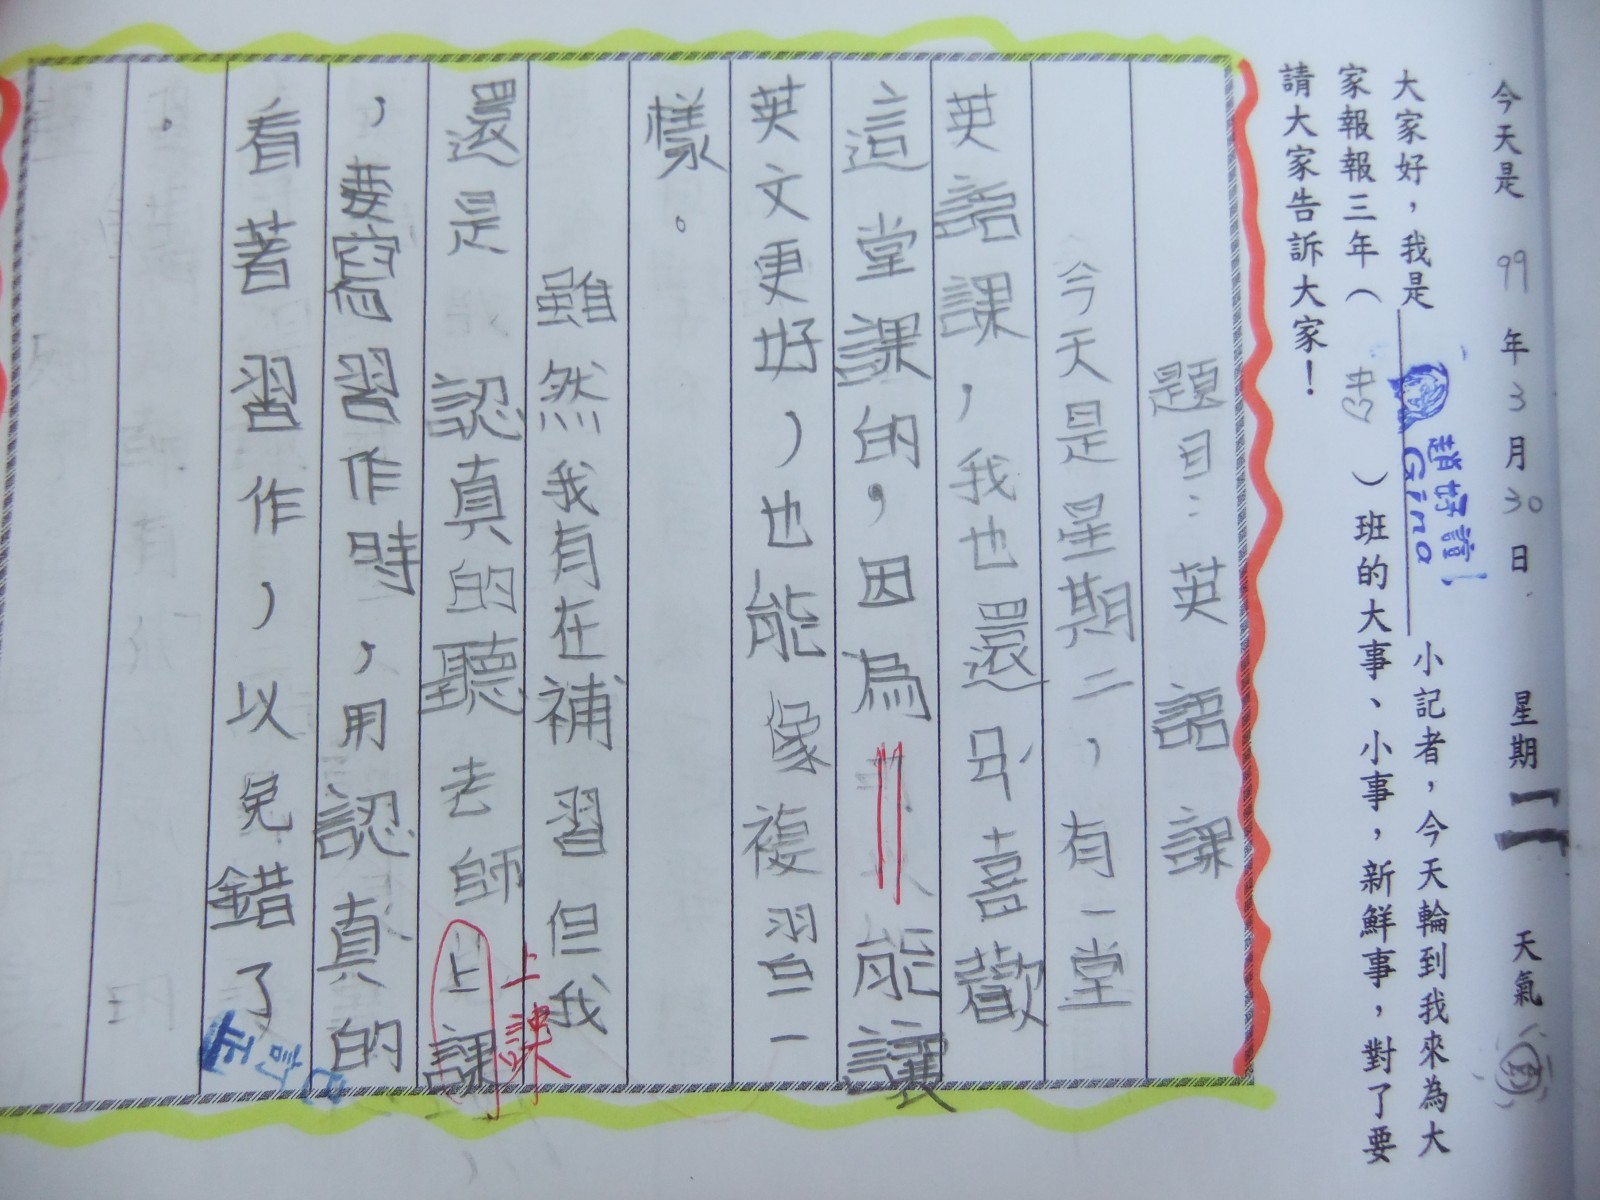 今天是 99 年 3 月 30 日 星期二 天氣
大家好，我是 趙妤誼 Gina 小記者，今天輪到我來為大
家報報三年（ ）班的大事、小事，新鮮事，對了要
請大家告訴大家！
題目：英語課
今天是星期二，有一堂
英語課，我也還蠻喜歡
這堂課的，因為能讓
英文更好，也能像複習一
樣。
雖然我有在補習但我
還是認真的聽老師上課
上課
，要寫習作時，用認真的
看著習作，以免錯了
。